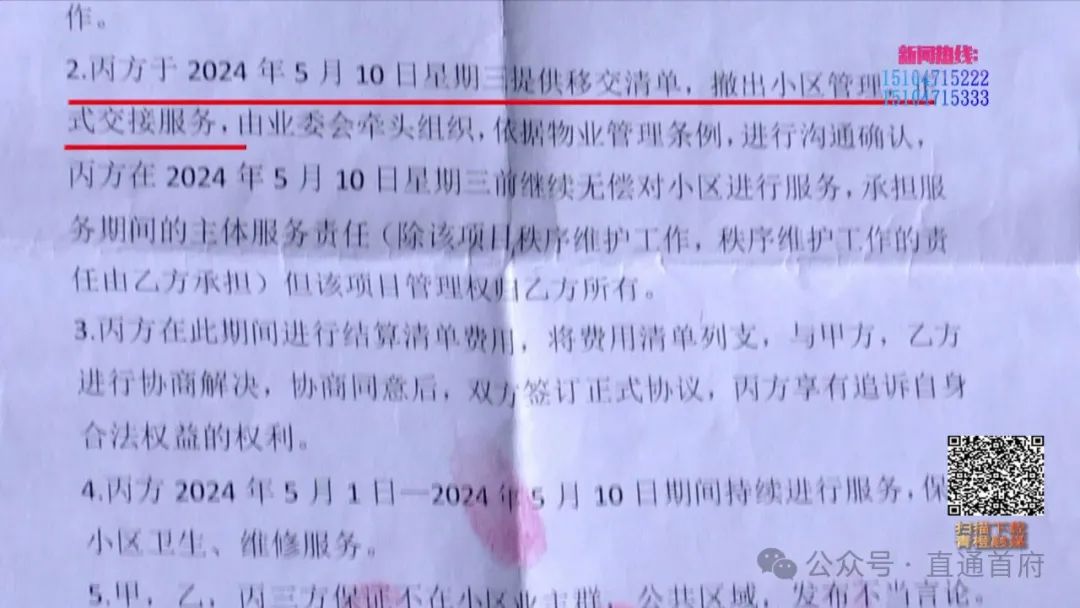 作。
新闻热线:
15104715222
15104715333
2.丙方于 2024 年 5 月 10 日星期三提供移交清单，撤出小区管理
式交接服务，由业委会牵头组织，依据物业管理条例，进行沟通确认，
丙方在 2024 年 5 月 10 日星期三前继续无偿对小区进行服务，承担服
务期间的主体服务责任（除该项目秩序维护工作，秩序维护工作的责
任由乙方承担）但该项目管理权归乙方所有。
3.丙方在此期间进行结算清单费用，将费用清单列支，与甲方，乙方
进行协商解决，协商同意后，双方签订正式协议，丙方享有追诉自身
合法权益的权利。
4.丙方 2024 年 5 月 1 日—2024 年 5 月 10 日期间持续进行服务，保
小区卫生、维修服务。
扫描下载
青橙融媒
公众号·直通首府
5.甲，乙，丙三方保证不在小区业主群，公共区域，发布不当言论。